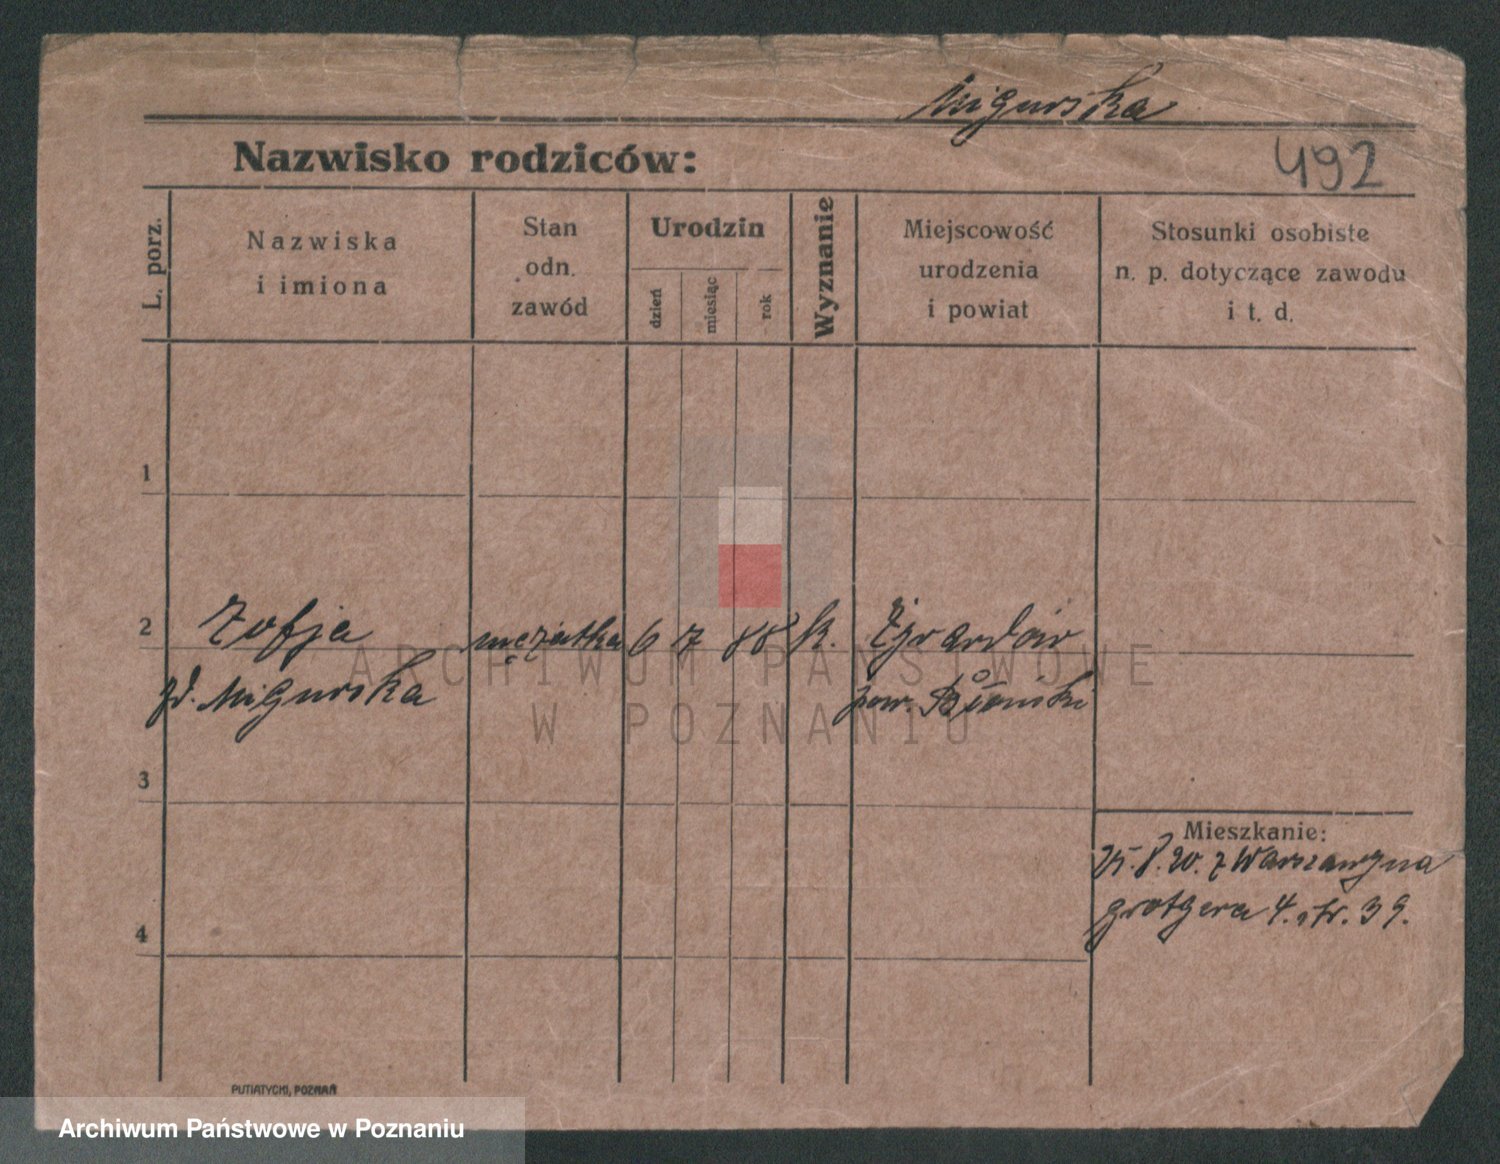 Migurska
Nazwisko rodziców:
492
L. porz.
Nazwiska
i imiona
Stan
odn.
zawód
Urodzin
dzień
miesiąc
rok
Wyznanie
Miejscowość
urodzenia
i powiat
Stosunki osobiste
n. p. dotyczące zawodu
i t. d.
1
2 Zofja mężatka 6 7 88 k. Żyrardów
zd. Migurska pow. Błoński
3
Mieszkanie:
25.8.20. z Warszawy na
grotgera 4. tr. 39.
4
PUTIATYCKI, POZNAŃ
ARCHIWUM PAŃSTWOWE
W POZNANIU
Archiwum Państwowe w Poznaniu